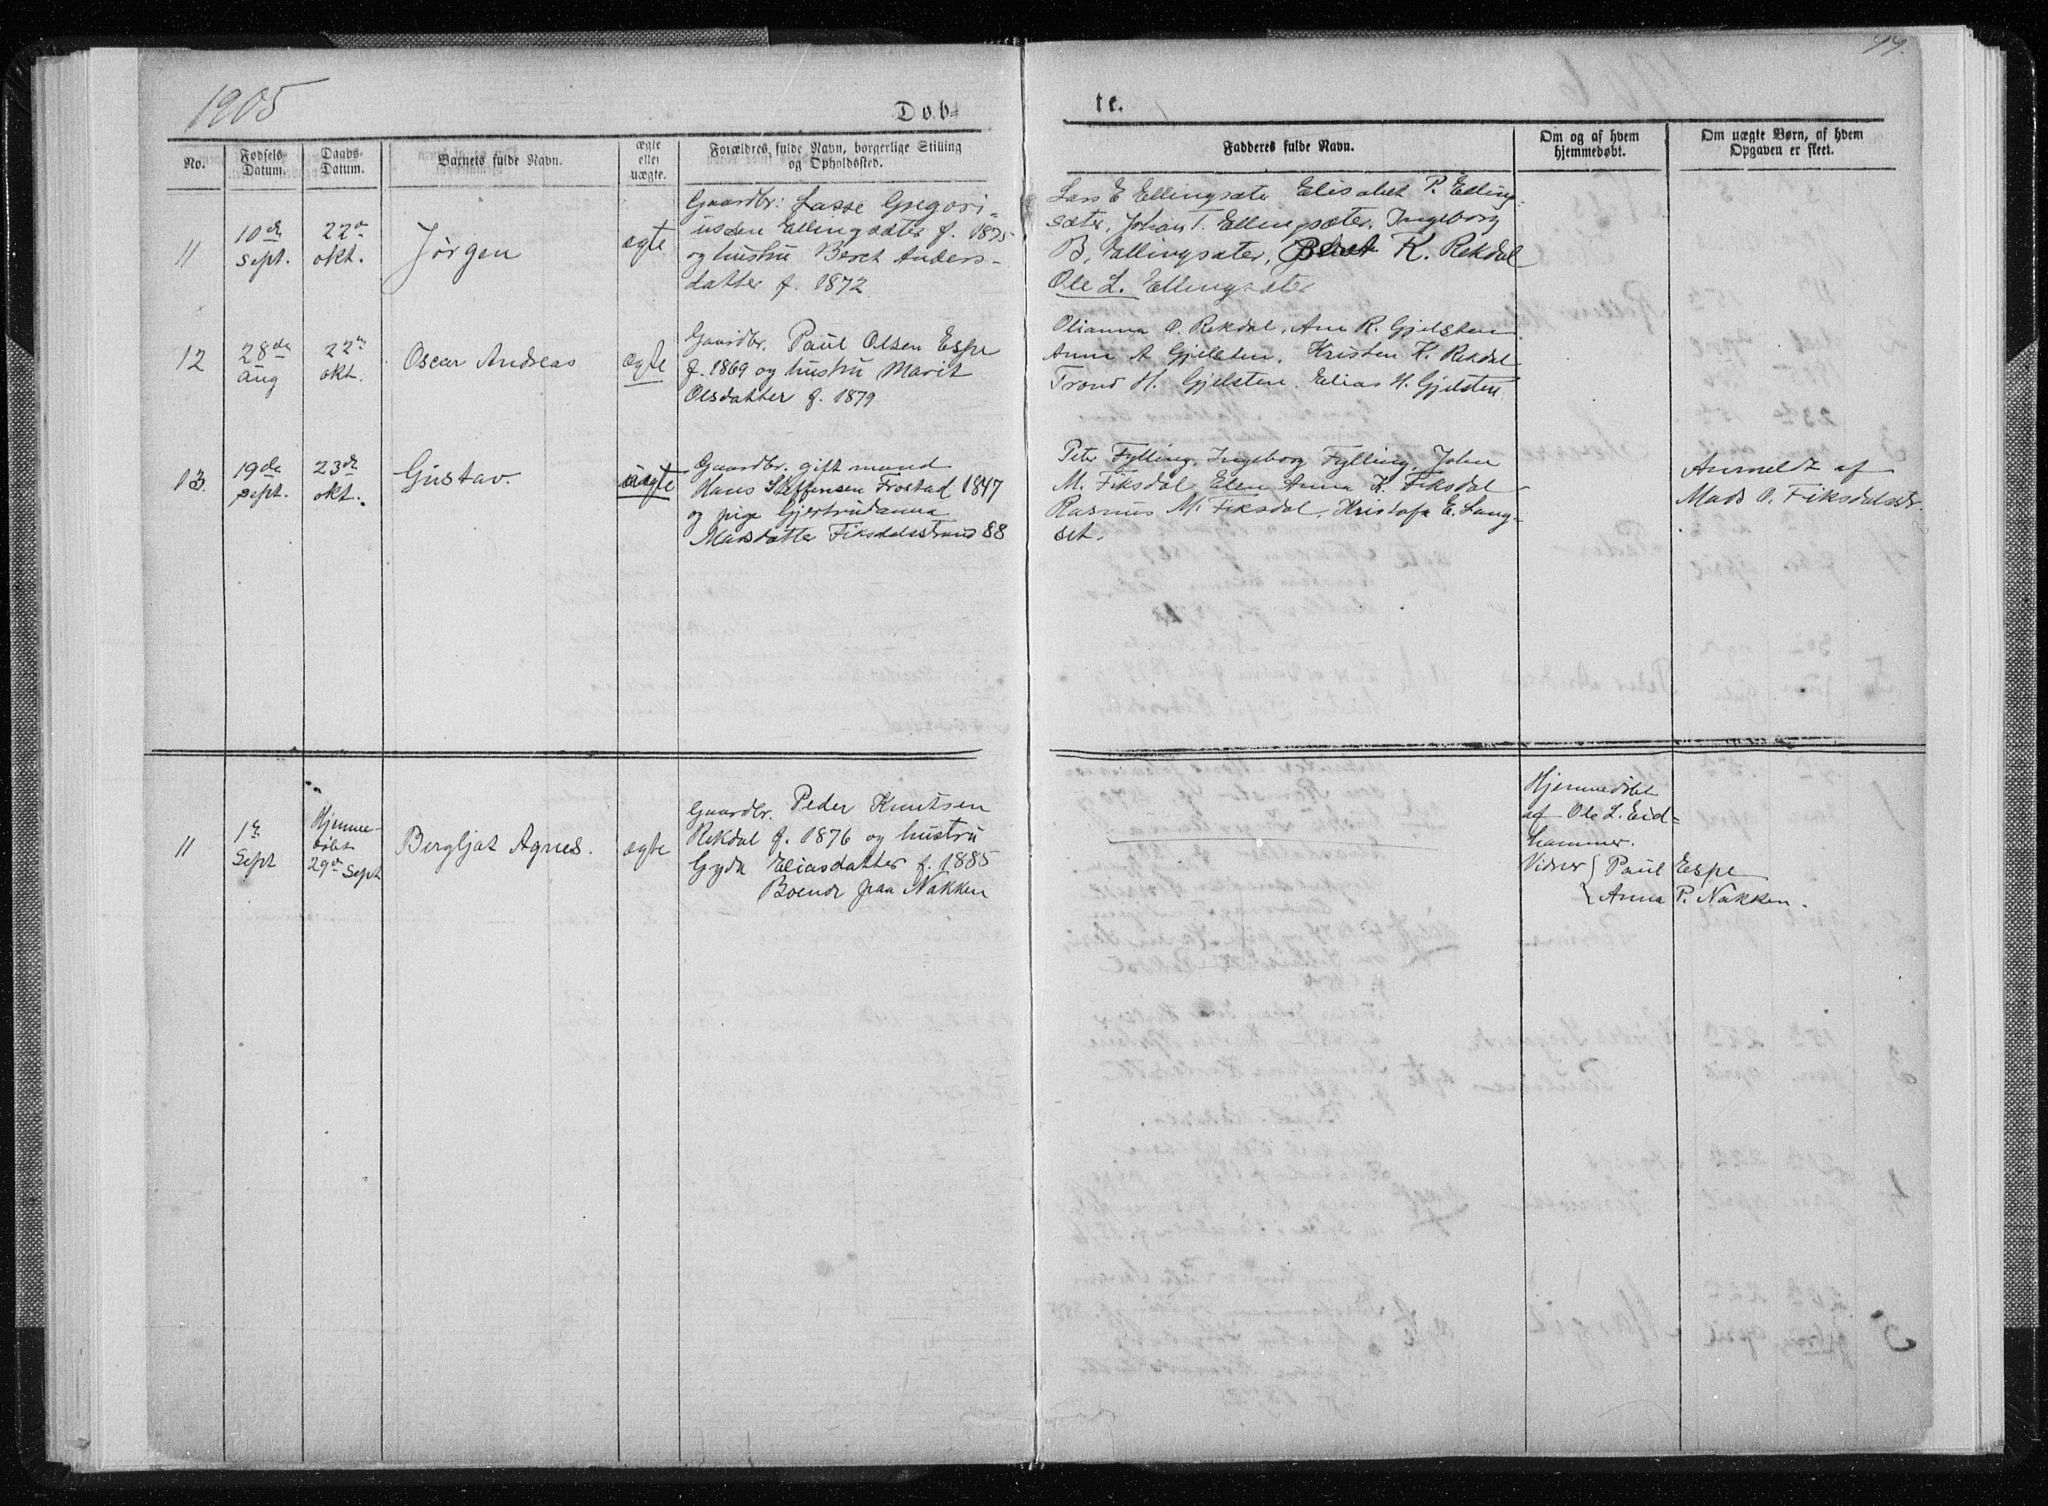 1905
99.
Døb-
te.
No.
Fødsels Datum.
Daabs Datum.
Barnets fulde Navn.
ægte eller uægte.
Forældres fulde Navn, borgerlige Stilling og Opholdssted.
Fadderes fulde Navn.
Om og af hvem hjemmedøbt.
Om uægte Børn, af hvem Opgaven er skeet.
11
10de sept.
22de okt.
Jørgen
ægte
Gaardbr: Lasse Gregori-
ussen Ellingsæter f. 1875
og hustru Beret Anders-
datter f. 1872
Lars E Ellingsæter Elisabet P. Elling-
sæter, Johan T. Ellingsæter, Ingeborg
B. Ellingsæter, Beret K. Rekdal
Ole L. Ellingsæter
12
28de aug
22de okt.
Oscar Andreas
ægte
Gaardbr. Paul Olsen Espe
f. 1869 og hustru Marit
Olsdatter f. 1879
Olianna O. Rekdal, Ane R. Gjelsten
Anne A Gjelsten, Kristen K. Rekdal
Trond H. Gjelsten, Elias H. Gjelsten
13.
19de sept.
23de okt.
Gustav.
uægte
Gaardbr. gift mand
Hans Steffensen Frostad 1847
og pige Gjertrudanna
Madsdatter Fiksdalsstrand 88
Peter Fylling, Ingeborg Fylling, John
M. Fiksdal Elen Anna K. Fiksdal
Rasmus M. Fiksdal, Kristofa E. Lang-
set.
Anmeldt af
Mads O. Fiksdalsstr.
11
1ste Sept
Hjemme-
døbt
29de Sept
Bergljot Agnes.
ægte
Gaardbr. Peder Knutsen
Rekdal f. 1876 og hustru
Gyda Eliasdatter f. 1885
Boende paa Nakken
Hjemmedøbt
af Ole L. Eid-
hammer.
Vidner { Paul Espe
{ Anna P. Nakken.